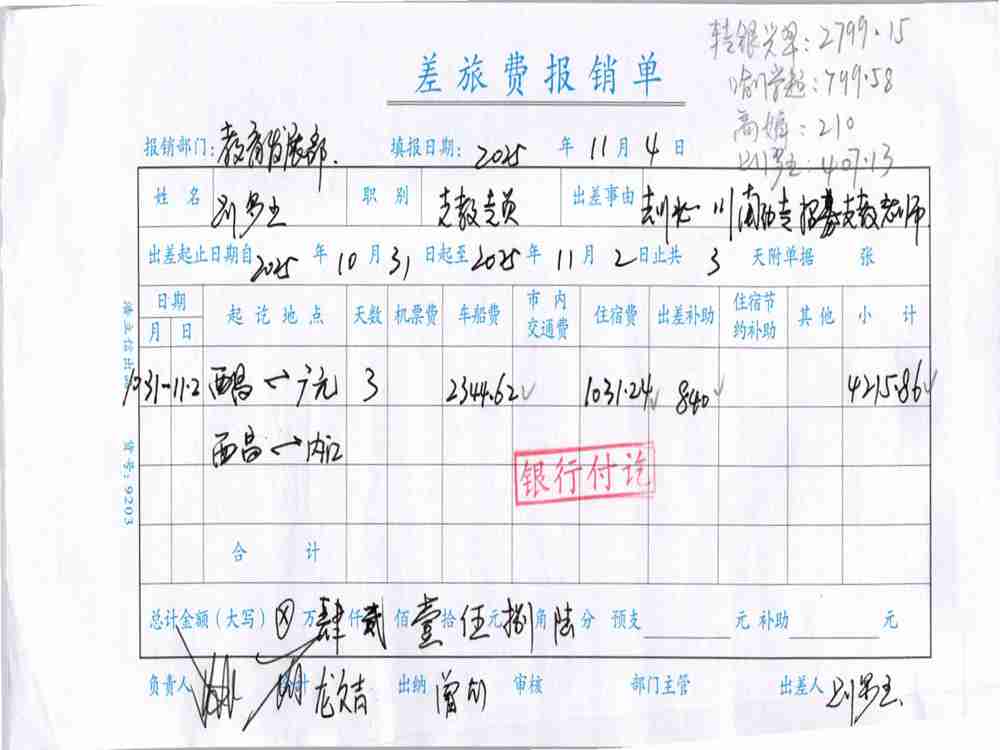 差旅费报销单
:2799.15
:799.58
高 :210
:407.13
报销部门:教育发展部. 填报日期: 2025 年 11 月 4 日
姓名 职别 支教专员 出差事由 川南 专招募支教老师
出差起止日期自 2025 年 10 月 31 日起至 2025 年 11 月 2 日止共 3 天附单据 张
日期 起讫地点 天数 机票费 车船费 市内交通费 住宿费 出差补助 住宿节约补助 其他 小计
月 日
10 31-11.2 西昌 ↔ 广元 3 2344.62 1031.24 840 4215.86
西昌 ↔ 内江
银行付讫
合计
总计金额(大写) ⊗ 万 肆 仟 贰 佰 壹 拾 伍 元 捌 角 陆 分 预支 元 补助 元
负责人 会计 出纳 审核 部门主管 出差人
货号:9203